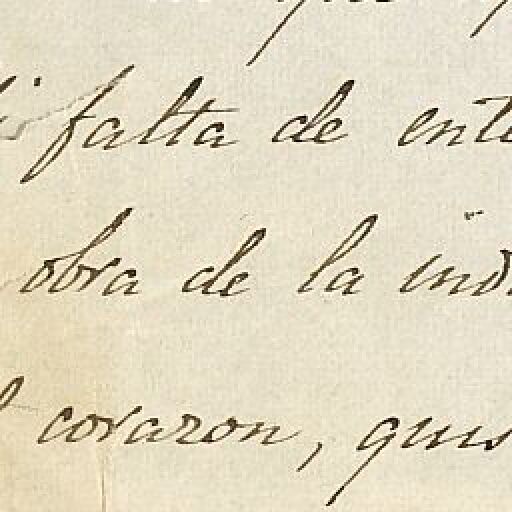 falta de ente
obra de la ind
corazon, quis